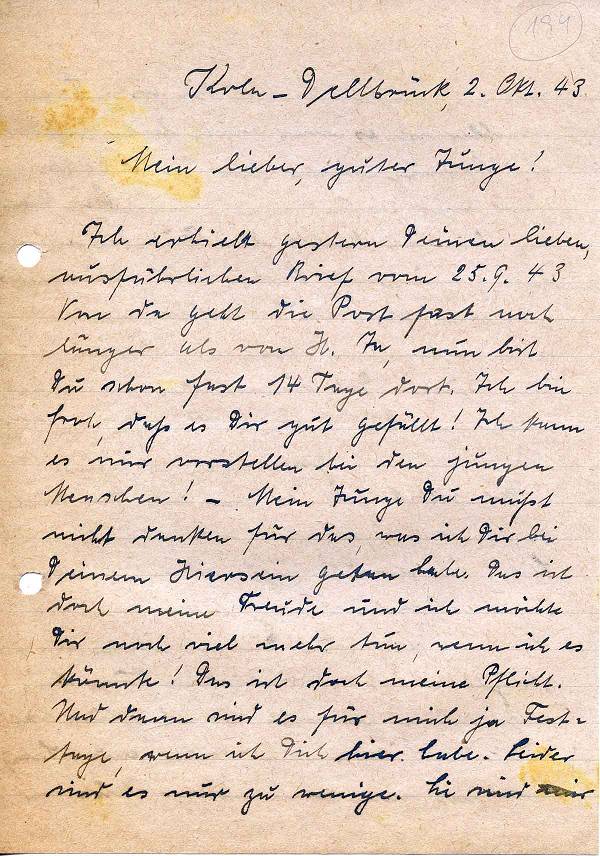 194
Köln-Dellbrück, 2. Okt. 43
Mein lieber, guter Junge!
Ich erhielt gestern Deinen lieben,
ausführlichen Brief vom 25.9.43
Von da geht die Post fast noch
länger als von H. Ja, nun bist
Du schon fast 14 Tage dort. Ich bin
froh, daß es Dir gut gefällt! Ich kann
es mir vorstellen bei den jungen
Menschen! – Mein Junge Du mußt
nicht danken für das, was ich Dir bei
Deinem Hiersein getan habe. Das ist
doch meine Freude und ich möchte
Dir noch viel mehr tun, wenn ich es
könnte! Das ist doch meine Pflicht.
Und dann sind es für mich ja Fest-
tage, wenn ich Dich hier habe. Leider
sind es nur zu wenige. Sie sind